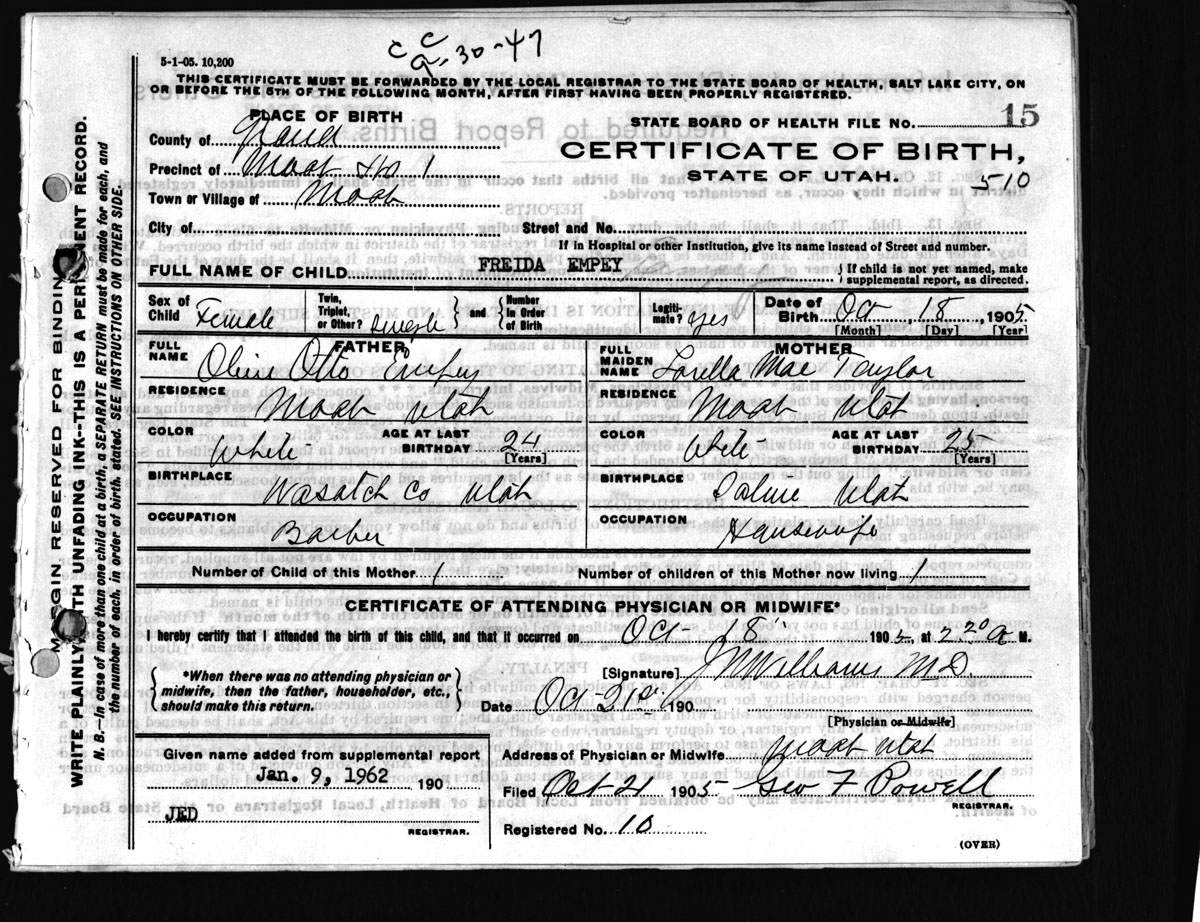 c c
a. 30-47
5-1-05. 10,200
THIS CERTIFICATE MUST BE FORWARDED BY THE LOCAL REGISTRAR TO THE STATE BOARD OF HEALTH, SALT LAKE CITY, ON
OR BEFORE THE 5TH OF THE FOLLOWING MONTH, AFTER FIRST HAVING BEEN PROPERLY REGISTERED.
PLACE OF BIRTH
STATE BOARD OF HEALTH FILE NO. 15
County of Grand
CERTIFICATE OF BIRTH,
Precinct of Moab No 1
STATE OF UTAH.
510
Town or Village of Moab
City of Street and No.
If in Hospital or other Institution, give its name instead of Street and number.
FULL NAME OF CHILD FREIDA EMPEY { If child is not yet named, make supplemental report, as directed.
Sex of Child Female Twin, Triplet, or Other? Single } and { Number in Order of Birth Legiti-mate? yes Date of Birth Oct 18, 1905
[Month] [Day] [Year]
FATHER MOTHER
FULL NAME Otto Empey FULL MAIDEN NAME Lorella Mae Taylor
RESIDENCE Moab Utah RESIDENCE Moab Utah
COLOR White AGE AT LAST BIRTHDAY 24 [Years] COLOR White AGE AT LAST BIRTHDAY 25 [Years]
BIRTHPLACE Wasatch Co Utah BIRTHPLACE Utah
OCCUPATION Barber OCCUPATION Housewife
Number of Child of this Mother 1 Number of children of this Mother now living 1
CERTIFICATE OF ATTENDING PHYSICIAN OR MIDWIFE*
I hereby certify that I attended the birth of this child, and that it occurred on Oct- 18 1905, at 2 20 A M.
*When there was no attending physician or
midwife, then the father, householder, etc.,
should make this return.
[Signature] J W Williams M.D.
Date Oct 21st 190
[Physician or Midwife]
Given name added from supplemental report
Jan. 9, 1962 190
JED
REGISTRAR.
Address of Physician or Midwife Moab Utah
Filed Oct 21 1905 Geo F Powell
REGISTRAR.
Registered No. 10
(OVER)
MARGIN RESERVED FOR BINDING
WRITE PLAINLY WITH UNFADING INK--THIS IS A PERMANENT RECORD.
N. B.--In case of more than one child at a birth, a SEPARATE RETURN must be made for each, and
the number of each, in order of birth, stated. SEE INSTRUCTIONS ON OTHER SIDE.